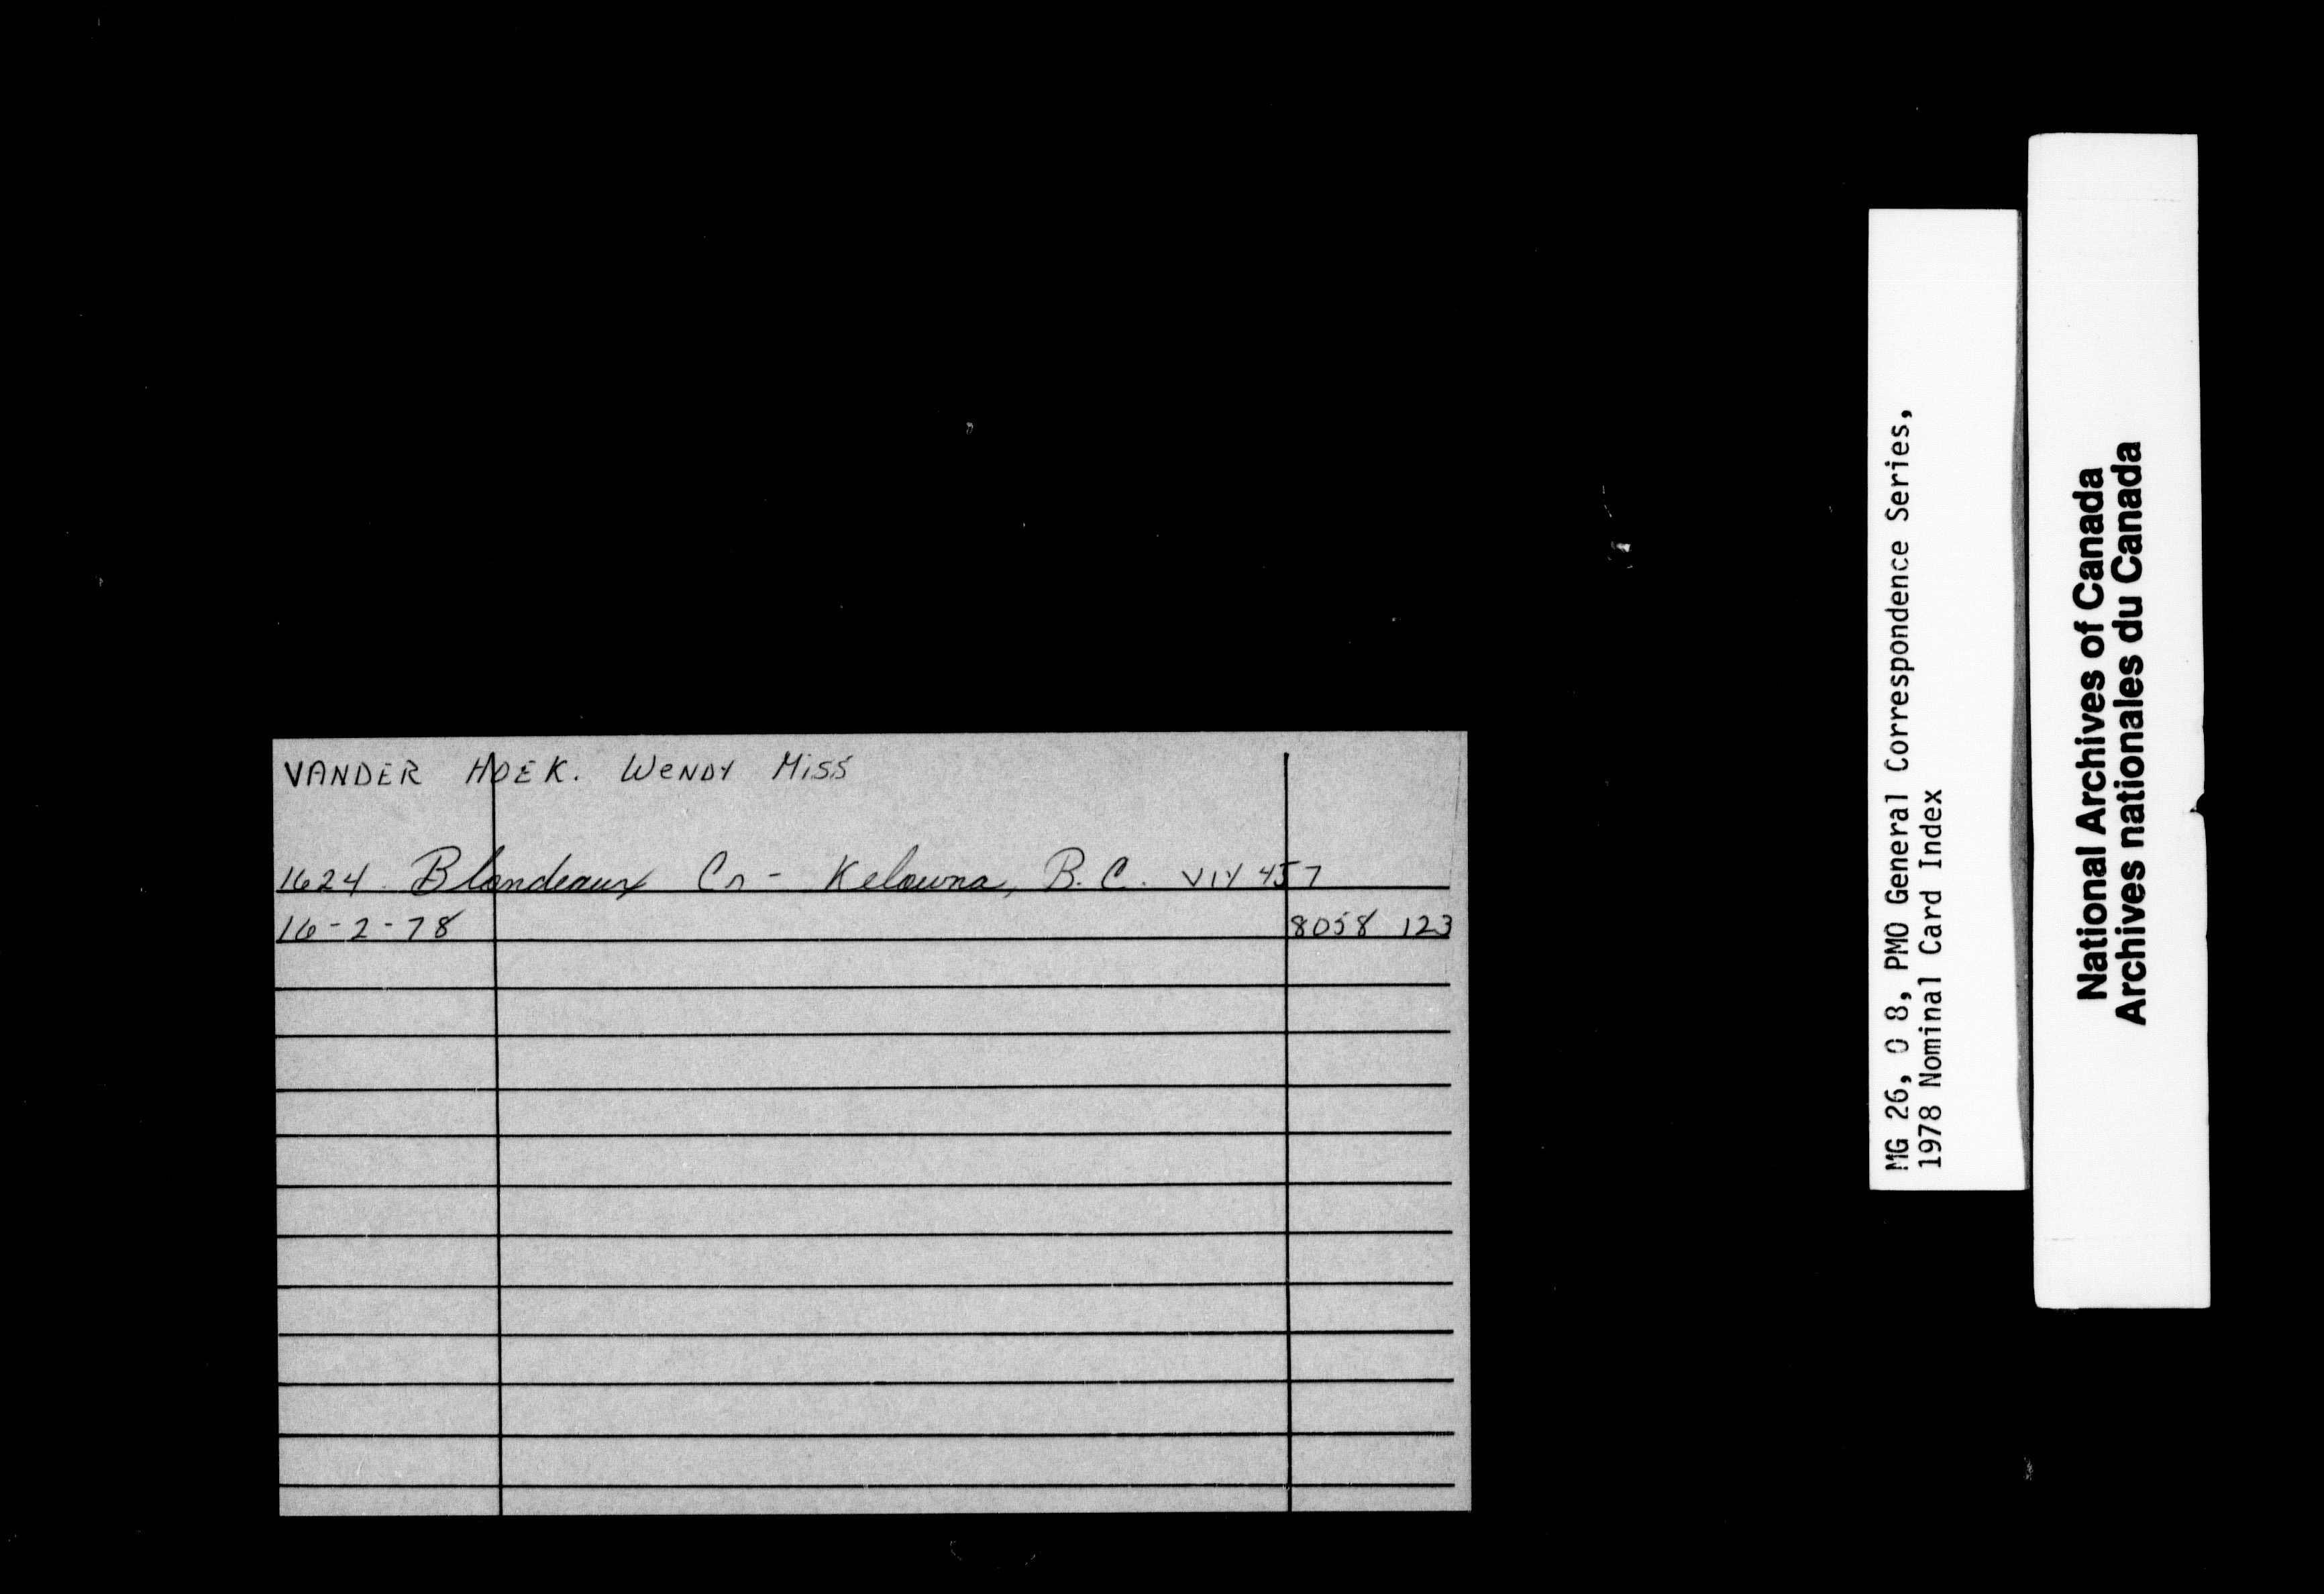 VANDER HOEK. WENDY MISS
1624 Blondeaux Cr - Kelowna, B.C. V1Y 4J7
16-2-78 8058 123
MG 26, O 8, PMO General Correspondence Series,
1978 Nominal Card Index
National Archives of Canada
Archives nationales du Canada